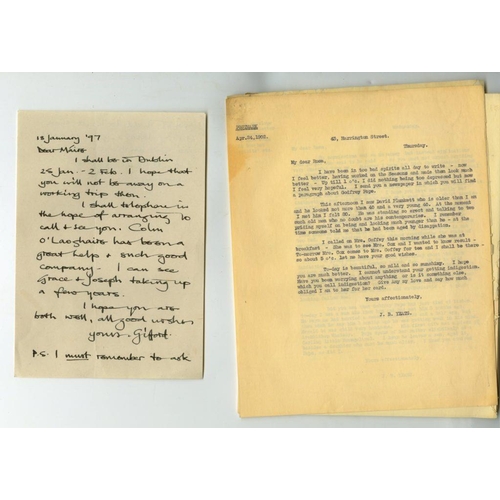 18 January '97
Dear Máire
I shall be in Dublin
28 Jan. - 2 Feb. I hope that
you will not be away on a
working trip then.
I shall telephone in
the hope of arranging to
call & see you. Colm
O'Laoghaire has been a
great help & such good
company. I can see
Grace & Joseph taking up
a few years.
I hope you are
both well, all good wishes
yours, Gifford.
P.S. I must remember to ask
POSTMARK
Apr.24,1902.
43, Harrington Street.
Thursday.
My dear Rosa,
I have been in too bad spirits all day to write - now
I feel better, having worked on the Seasons and made them look much
better - Up till 1 o'c. I did nothing being too depressed but now
I feel very hopeful. I send you a newspaper in which you will find
a paragraph about Godfrey Pope.
This afternoon I saw David Plunkett who is older than I am
and he looked not more than 45 and a very young 45. At the moment
I met him I felt 80. He was standing so erect and talking to two
such old men who no doubt are his contemporaries. I remember
priding myself on being and looking much younger than he - at the
time someone told me that he had been aged by dissipation.
I called on Mrs. Coffey this morning while she was at
breakfast - She was to see Mrs. Rus and I wanted to know result -
To-morrow Mrs. Rus comes to Mrs. Coffey for tea and I shall be there
so about 5 o'c. Let me have your good wishes.
To-day is beautiful, so mild and so sunshiny. I hope
you are much better. I cannot understand your getting indigestion.
Have you been worrying about anything or is it something else,
which you call indigestion? Give my love and say how much
obliged I am to her for her card.
Yours affectionately,
J. B. YEATS.